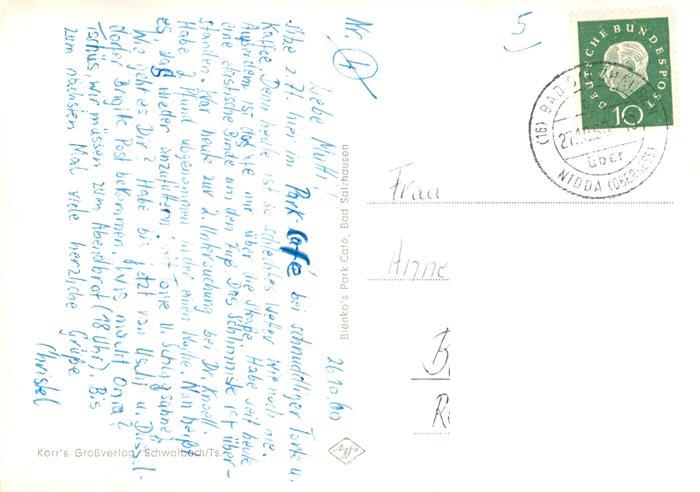 Nr. 4
26.10.60
Liebe Mutti,
sitze z. Zt. hier im Park-Café bei schmuddliger Torte u.
Kaffee. Denn heut ist so schlechtes Wetter wie noch nie.
Außerdem ist das wie nur über die Straße. Habe seit heute
eine elastische Binde um den Fuß. Das Schlimmste ist über-
standen. War heute zur 2. Untersuchung bei Dr. Knoell.
Habe 2 Pfund zugenommen in der einen Woche. Nun heißt
es, das wieder anzufüttern mit Torte u. Schlagsahne!
Wie geht es Dir? Habe bis jetzt von Uschi u. Düssel-
dorfer Brigitte Post bekommen. Wie macht Oma?
Tschüs, wir müssen zum Abendbrot (18 Uhr). Bis
zum nächsten Mal viele herzliche Grüße
Christel
Blenko's Park Café, Bad Salzhausen
Korr's Großverlag, Schwalbach/Ts.
5
DEUTSCHE BUNDESPOST
10
(16) BAD
27.10.60
über
NIDDA (OBERHESS)
Frau
Anne